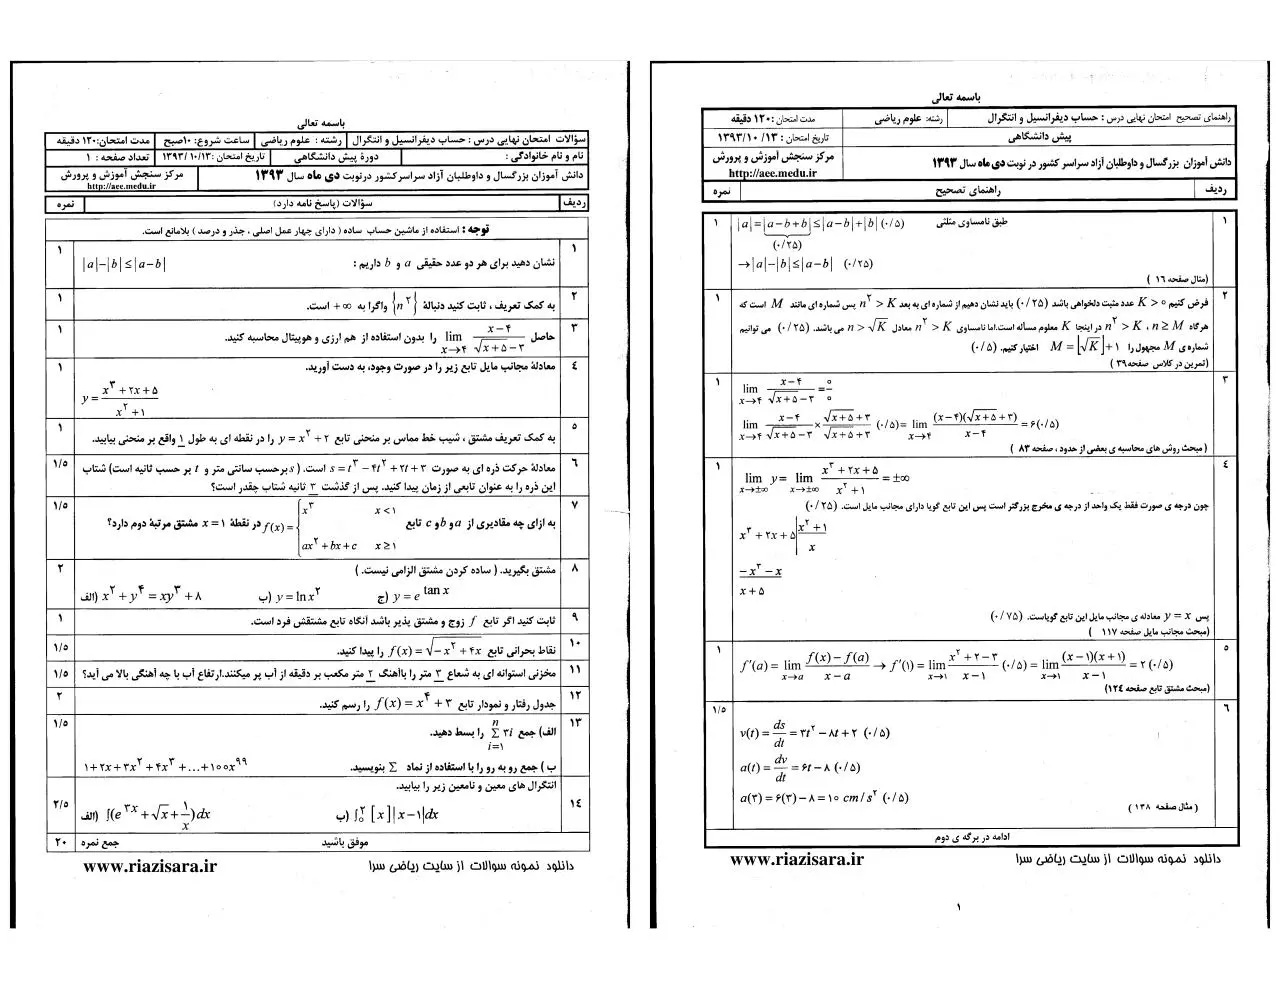 باسمه تعالی
سؤالات امتحان نهایی درس : حساب دیفرانسیل و انتگرال
رشته : علوم ریاضی
ساعت شروع: ۱۰صبح
مدت امتحان:۱۲۰ دقیقه
نام و نام خانوادگی :
دورۀ پیش دانشگاهی
تاریخ امتحان :۱۳ /۱۰ /۱۳۹۳
تعداد صفحه : ۱
دانش آموزان بزرگسال و داوطلبان آزاد سراسر کشور درنوبت دی ماه سال ۱۳۹۳
مرکز سنجش آموزش و پرورش
http://aee.medu.ir
ردیف
سؤالات (پاسخ نامه دارد)
نمره
توجه : استفاده از ماشین حساب ساده ( دارای چهار عمل اصلی ، جذر و درصد ) بلامانع است.
۱ نشان دهید برای هر دو عدد حقیقی a و b داریم : |a|−|b| ≤ |a−b| ۱
۲ به کمک تعریف ، ثابت کنید دنبالۀ {n^۲} واگرا به ∞+ است. ۱
۳ حاصل lim x→۴ (x−۴)/(√(x+۵)−۳) را بدون استفاده از هم ارزی و هوپیتال محاسبه کنید. ۱
۴ معادلۀ مجانب مایل تابع زیر را در صورت وجود، به دست آورید. ۱
y = (x^۳+۲x+۵)/(x^۲+۱)
۵ به کمک تعریف مشتق ، شیب خط مماس بر منحنی تابع y = x^۲ + ۲ را در نقطه ای به طول ۱ واقع بر منحنی بیابید. ۱
۶ معادلۀ حرکت ذره ای به صورت s = t^۳ − ۴t^۲ + ۲t + ۳ است. ( s برحسب سانتی متر و t بر حسب ثانیه است) شتاب ۱/۵
این ذره را به عنوان تابعی از زمان پیدا کنید. پس از گذشت ۳ ثانیه شتاب چقدر است؟
۷ به ازای چه مقادیری از a و b و c تابع f(x) = { x^۳ x<۱ ; ax^۲+bx+c x≥۱ در نقطۀ x = ۱ مشتق مرتبۀ دوم دارد؟ ۱/۵
۸ مشتق بگیرید. ( ساده کردن مشتق الزامی نیست. ) ۲
الف) x^۲ + y^۴ = xy^۳ + ۸ ب) y = ln x^۲ ج) y = e^(tan x)
۹ ثابت کنید اگر تابع f زوج و مشتق پذیر باشد آنگاه تابع مشتقش فرد است. ۱
۱۰ نقاط بحرانی تابع f(x) = √(−x^۲ + ۴x) را پیدا کنید. ۱/۵
۱۱ مخزنی استوانه ای به شعاع ۳ متر را باآهنگ ۲ متر مکعب بر دقیقه از آب پر میکنند.ارتفاع آب با چه آهنگی بالا می آید؟ ۱/۵
۱۲ جدول رفتار و نمودار تابع f(x) = x^۴ + ۳ را رسم کنید. ۲
۱۳ الف) جمع Σ i=۱ n ۳i را بسط دهید. ۱/۵
ب ) جمع رو به رو را با استفاده از نماد Σ بنویسید. ۱+۲x+۳x^۲+۴x^۳+...+۱۰۰x^۹۹
۱۴ انتگرال های معین و نامعین زیر را بیابید. ۲/۵
الف) ∫(e^۳x + √x + ۱/x)dx ب) ∫₀^۲ [x]|x−۱|dx
موفق باشید
جمع نمره ۲۰
دانلود نمونه سوالات از سایت ریاضی سرا www.riazisara.ir
باسمه تعالی
راهنمای تصحیح امتحان نهایی درس : حساب دیفرانسیل و انتگرال
رشته: علوم ریاضی
مدت امتحان :۱۲۰ دقیقه
پیش دانشگاهی
تاریخ امتحان : ۱۳ /۱۰ /۱۳۹۳
دانش آموزان بزرگسال و داوطلبان آزاد سراسر کشور در نوبت دی ماه سال ۱۳۹۳
مرکز سنجش آموزش و پرورش
http://aee.medu.ir
ردیف
راهنمای تصحیح
نمره
۱ طبق نامساوی مثلثی |a| = |a−b+b| ≤ |a−b|+|b| (۰/۵) ۱
(۰/۲۵)
→ |a|−|b| ≤ |a−b| (۰/۲۵)
(مثال صفحه ۱۶ )
۲ فرض کنیم K > ۰ عدد مثبت دلخواهی باشد (۰/۲۵) باید نشان دهیم از شماره ای به بعد n^۲ > K پس شماره ای مانند M است که ۱
هرگاه n ≥ M ، n^۲ > K در اینجا K معلوم مسأله است.اما نامساوی n^۲ > K معادل n > √K می باشد. (۰/۲۵) می توانیم
شماره ی M مجهول را M = [√K]+۱ اختیار کنیم. (۰/۵)
(تمرین در کلاس صفحه ۳۹)
۳ lim x→۴ (x−۴)/(√(x+۵)−۳) = ۰/۰ ۱
lim x→۴ (x−۴)/(√(x+۵)−۳) × (√(x+۵)+۳)/(√(x+۵)+۳) (۰/۵) = lim x→۴ (x−۴)(√(x+۵)+۳)/(x−۴) = ۶ (۰/۵)
( مبحث روش های محاسبه ی بعضی از حدود ، صفحه ۸۳ )
۴ lim x→±∞ y = lim x→±∞ (x^۳+۲x+۵)/(x^۲+۱) = ±∞ ۱
چون درجه ی صورت فقط یک واحد از درجه ی مخرج بزرگتر است پس این تابع گویا دارای مجانب مایل است. (۰/۲۵)
x^۳+۲x+۵ | x^۲+۱
x
−x^۳−x
x+۵
پس y = x معادله ی مجانب مایل این تابع گویاست. (۰/۷۵)
(مبحث مجانب مایل صفحه ۱۱۷ )
۵ f′(a) = lim x→a (f(x)−f(a))/(x−a) → f′(۱) = lim x→۱ (x^۲+۲−۳)/(x−۱) (۰/۵) = lim x→۱ (x−۱)(x+۱)/(x−۱) = ۲ (۰/۵) ۱
(مبحث مشتق تابع صفحه ۱۲۴)
۶ v(t) = ds/dt = ۳t^۲ − ۸t + ۲ (۰/۵) ۱/۵
a(t) = dv/dt = ۶t − ۸ (۰/۵)
a(۳) = ۶(۳) − ۸ = ۱۰ cm/s^۲ (۰/۵)
( مثال صفحه ۱۳۸ )
ادامه در برگه ی دوم
دانلود نمونه سوالات از سایت ریاضی سرا www.riazisara.ir
۱